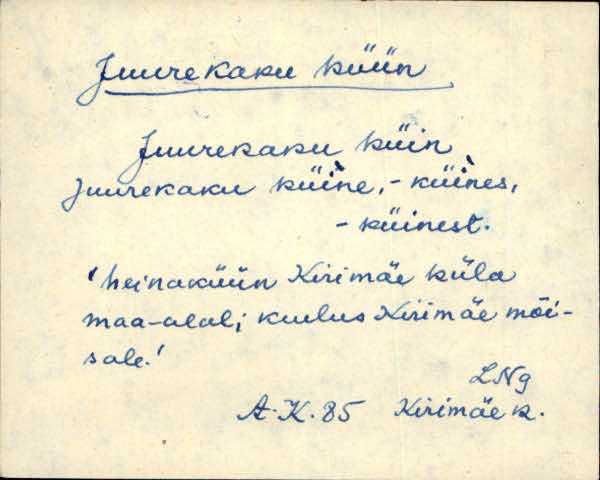 Juurekaku küün
Juurekaku küin
Juurekaku küìne, - küìnes,
- küinest.
'heinaküün Kirimäe küla
maa-alal; kuulus Kirimäe mõi-
sale.'
LNg
A. K. 85 Kirimäe k.